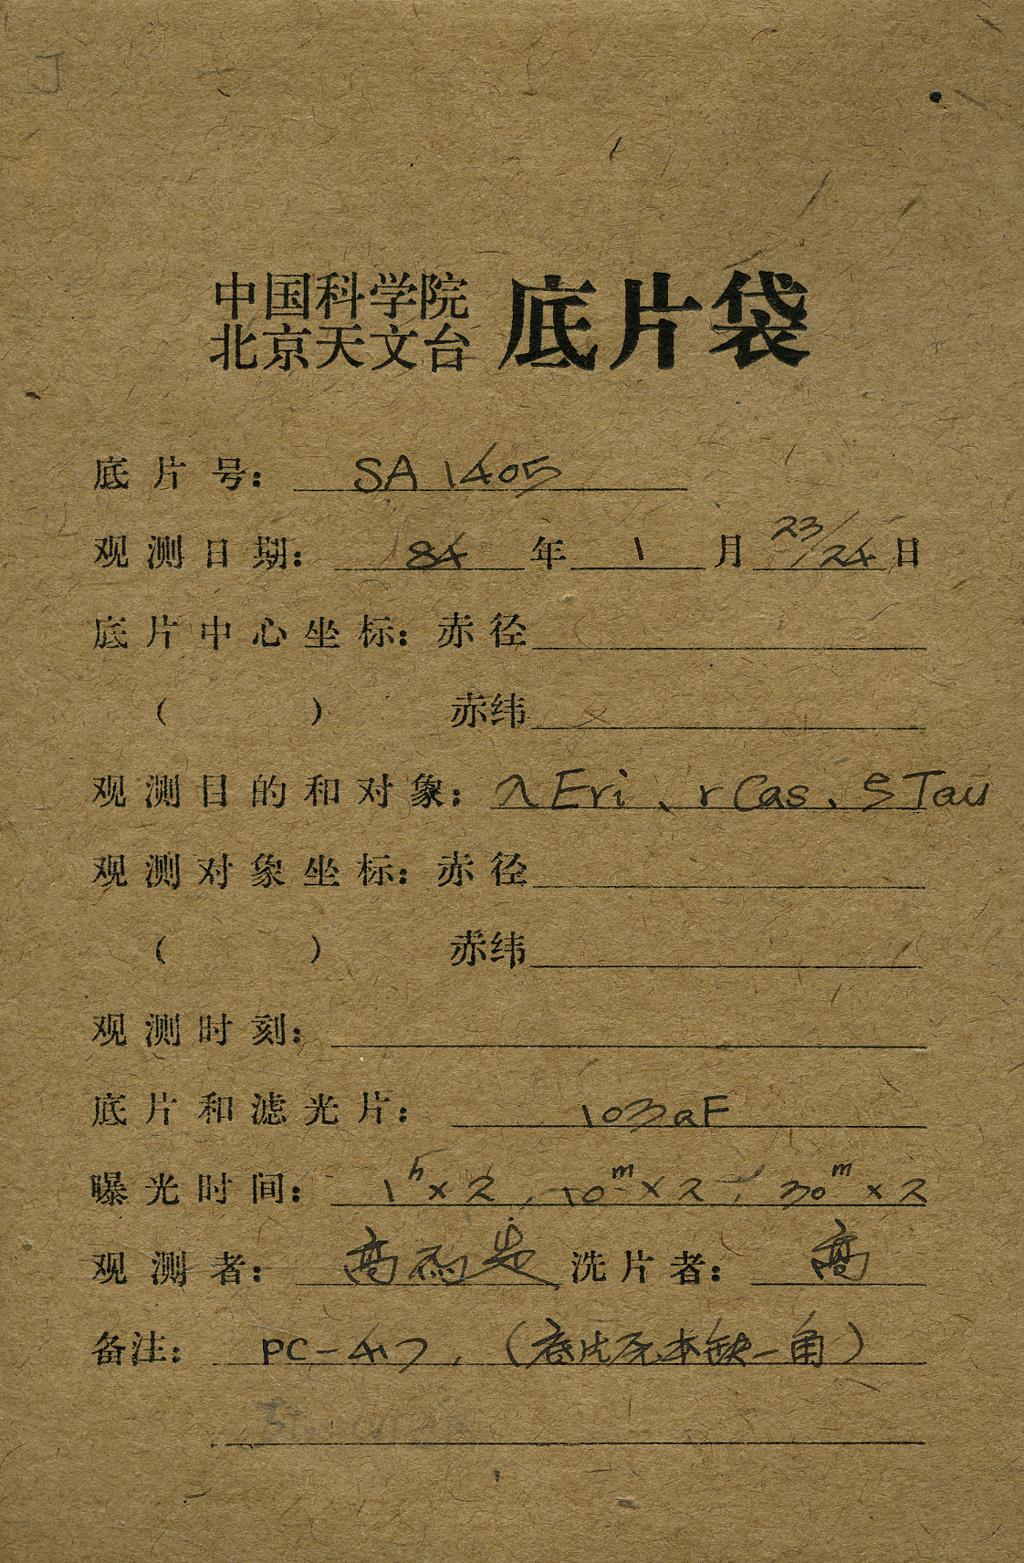 中国科学院
北京天文台 底片袋
底片号： SA 1405
观测日期： 84 年 1 月 23/24 日
底片中心坐标：赤径
（ ） 赤纬
观测目的和对象： λ Eri、r Cas、ζ Tau
观测对象坐标：赤径
（ ） 赤纬
观测时刻：
底片和滤光片： 103aF
曝光时间： 1ʰ×2，10ᵐ×2，30ᵐ×2
观测者： 高 洗片者： 高
备注： PC-47，（底片原本缺一角）